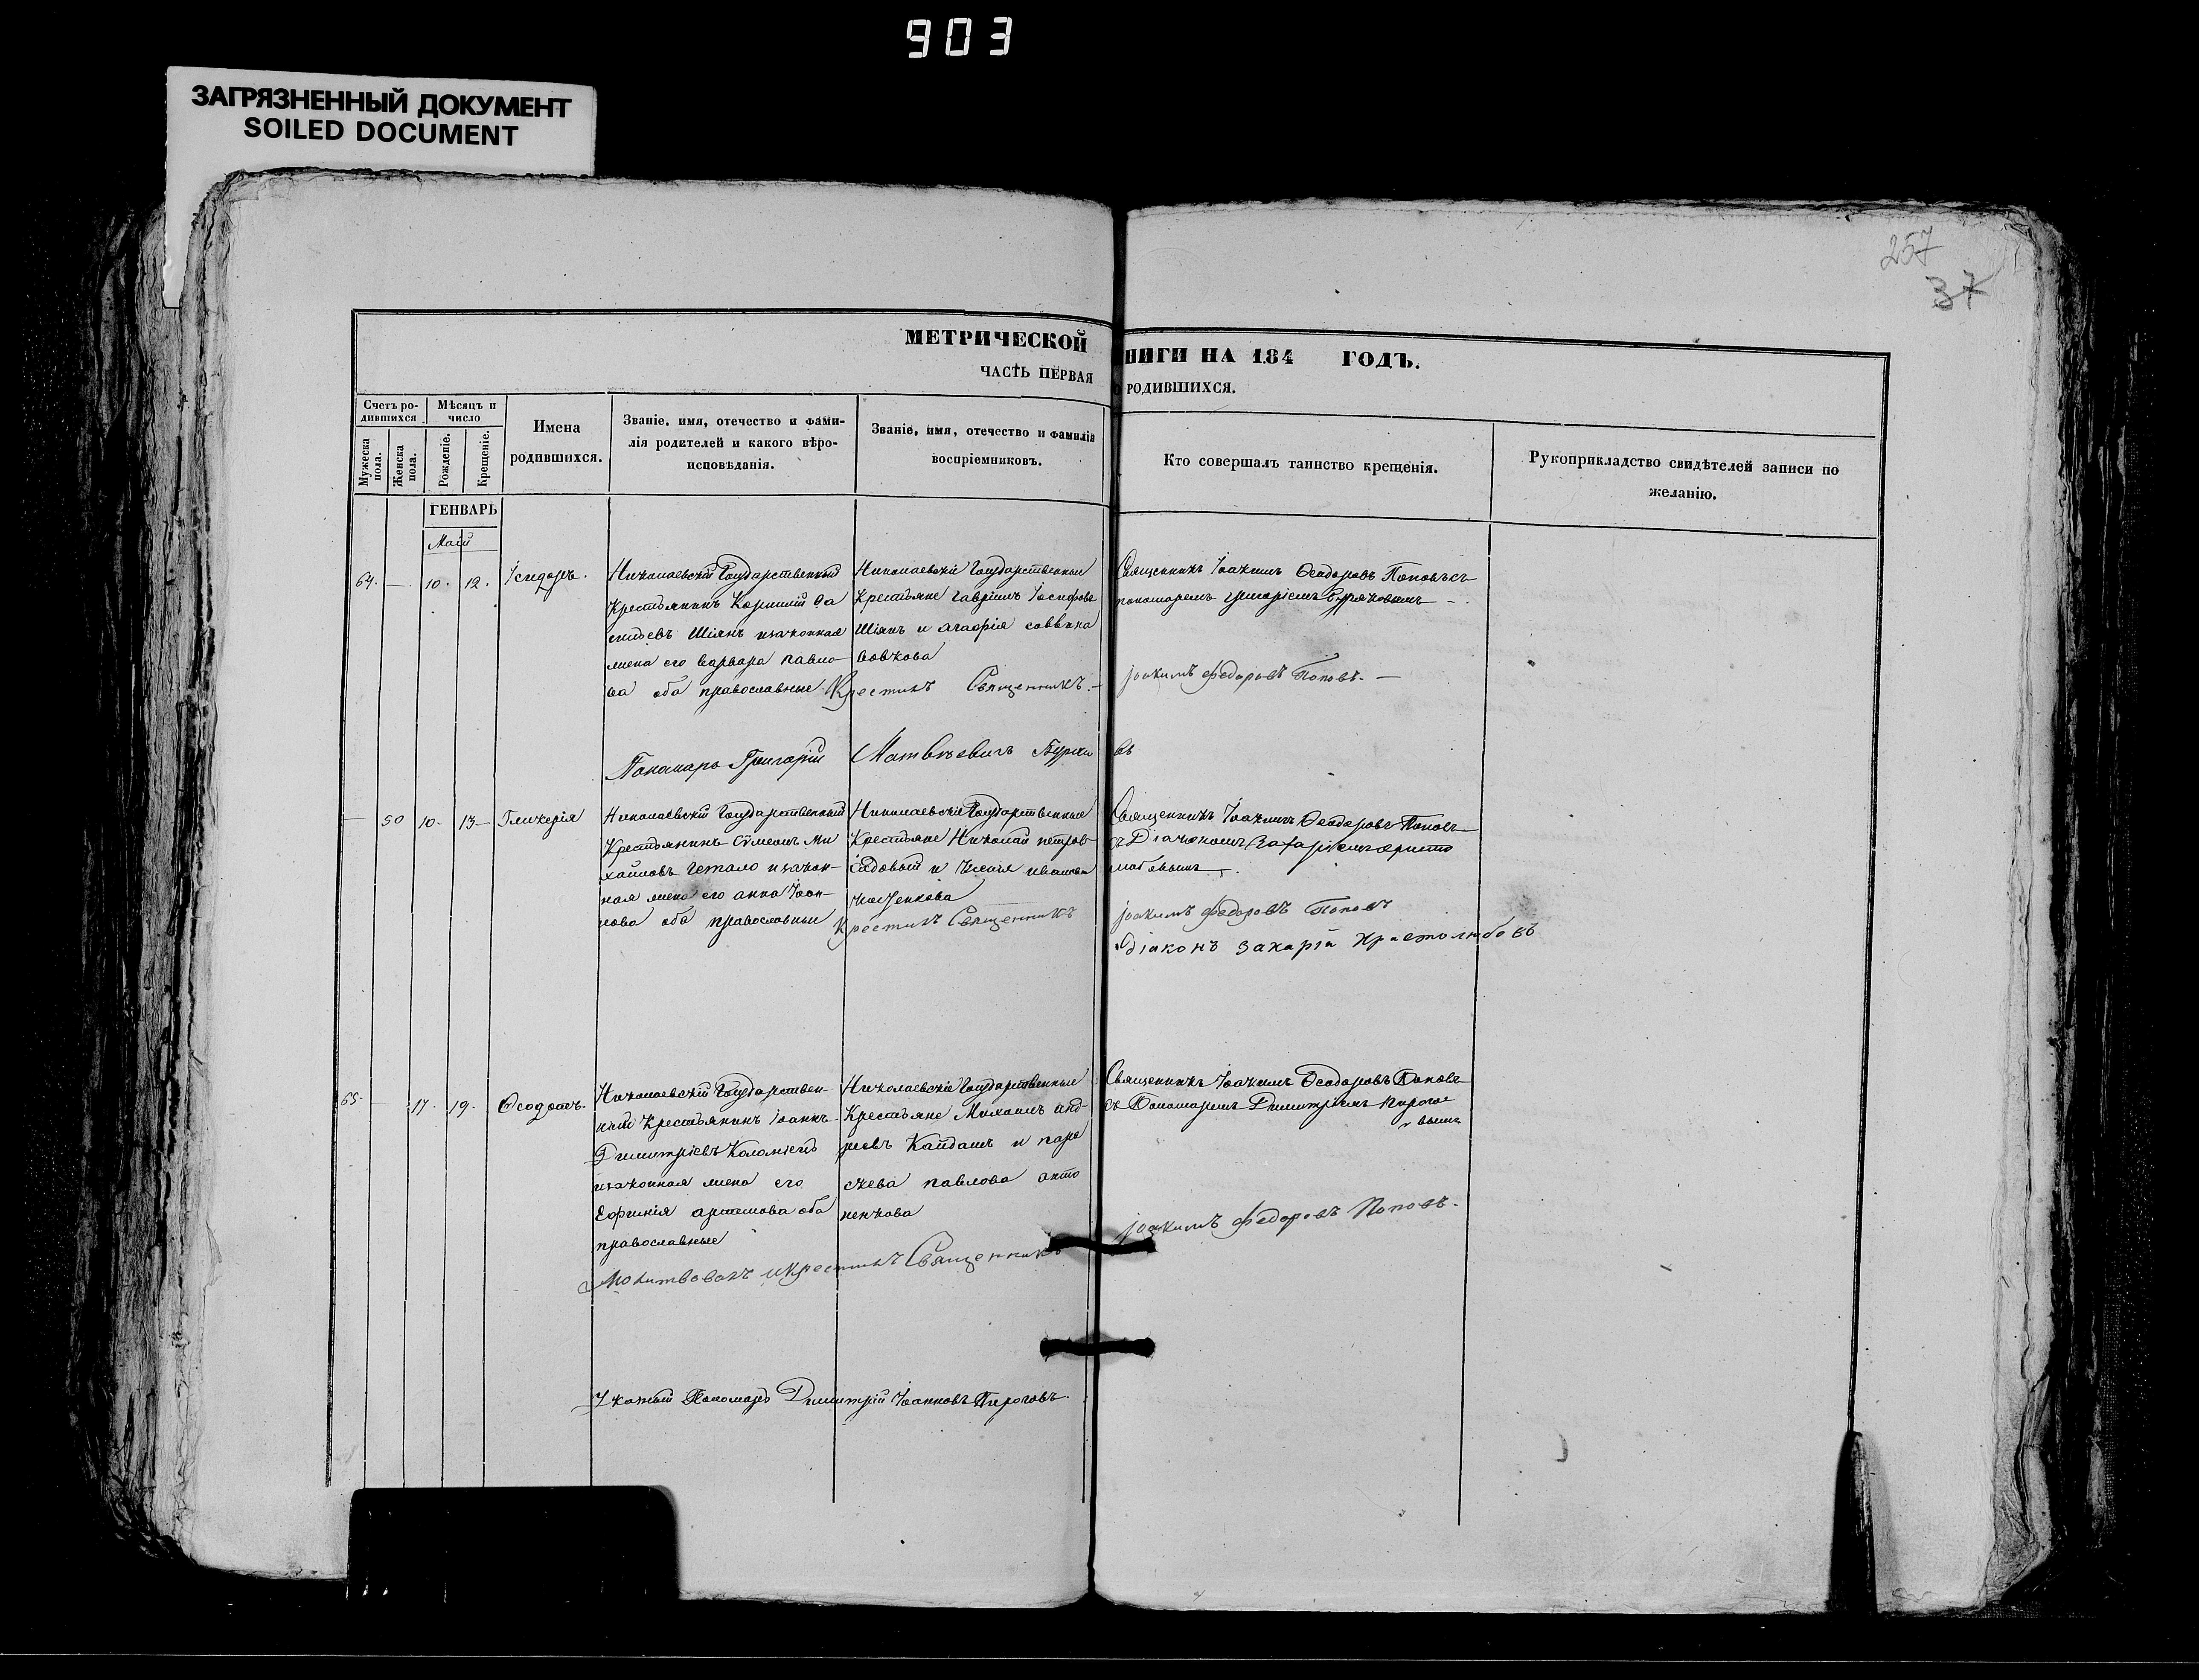 903
ЗАГРЯЗНЕННЫЙ ДОКУМЕНТ
SOILED DOCUMENT
257
37
МЕТРИЧЕСКОЙ НИГИ НА 184 ГОДЪ.
ЧАСТЬ ПЕРВАЯ О РОДИВШИХСЯ.
Счетъ ро-
дившихся
Мужеска пола.
Женска пола.
Мѣсяцъ и
число
Рожденіе.
Крещеніе.
Имена
родившихся.
Званіе, имя, отечество и фами-
лія родителей и какого вѣро-
исповѣданія.
Званіе, имя, отечество и фамилія
воспріемниковъ.
Кто совершалъ таинство крещенія.
Рукоприкладство свидѣтелей записи по
желанію.
ГЕНВАРЬ
Маій
64. — 10. 12. Ісидоръ.
Николаевскій Государственный
Крестьянинъ Корнилій
Шіянъ изаконная
жена его варвара павло
ва оба православные
Николаевскіе Государственные
Крестьяне Гавріилъ Іосифовъ
Шіянъ и агафія саввина
вовкова
Священникъ Іоакимъ Ѳеодоровъ Поповъ съ
пономаремъ григоріемъ
Крестилъ Священникъ.— Іоакимъ Федоровъ Поповъ.—
Понамарь Григорій Матвѣевичъ
— 50 10. 13— Гликерія
Николаевскій Государственный
Крестьянинъ Сѵмеонъ Ми
хайловъ Гетало изакон-
ная жена его анна Іоан-
нова оба православныи
Николаевскіе Государственные
Крестьяне Николай петровъ
Садовый и
Священникъ Іоакимъ Ѳеодоровъ Поповъ
съ Діакономъ Захаріемъ христо
любовымъ
Крестилъ Священникъ Іоакимъ Федоровъ Поповъ
Діаконъ Захарій Христолюбовъ
65. — 17. 19. Ѳеодотъ.
Николаевскій Государствен-
ный Крестьянинъ Іоаннъ
Димитріевъ Коломіецъ
изаконная жена его
Евфимія артемова оба
православные
Николаевскіе Государственные
Крестьяне Михаилъ анд-
реевъ Кайдашъ и пара
скева павлова анто
ненкова
Священникъ Іоакимъ Ѳеодоровъ Поповъ
съ Пономаремъ Димитріемъ Пирого
вымъ
Молитвовалъ и Крестилъ Священникъ Іоакимъ Федоровъ Поповъ.
Пономарь Димитрій Іоанновъ Пироговъ.